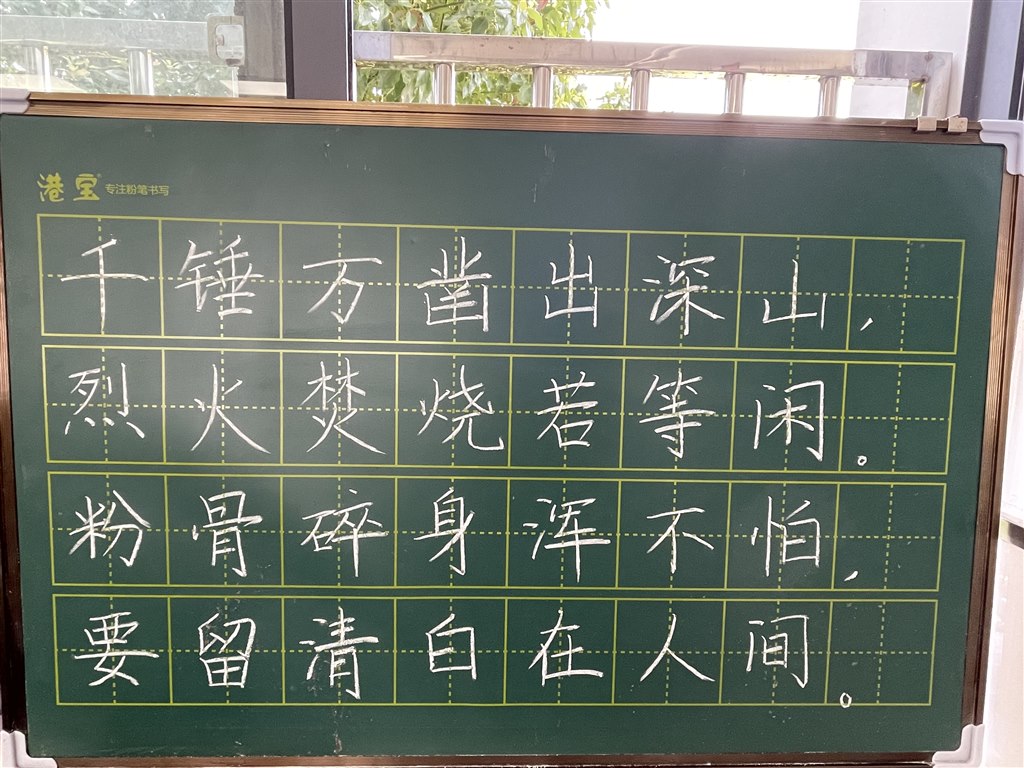 港宝 专注粉笔书写
千锤万凿出深山，
烈火焚烧若等闲。
粉骨碎身浑不怕，
要留清白在人间。